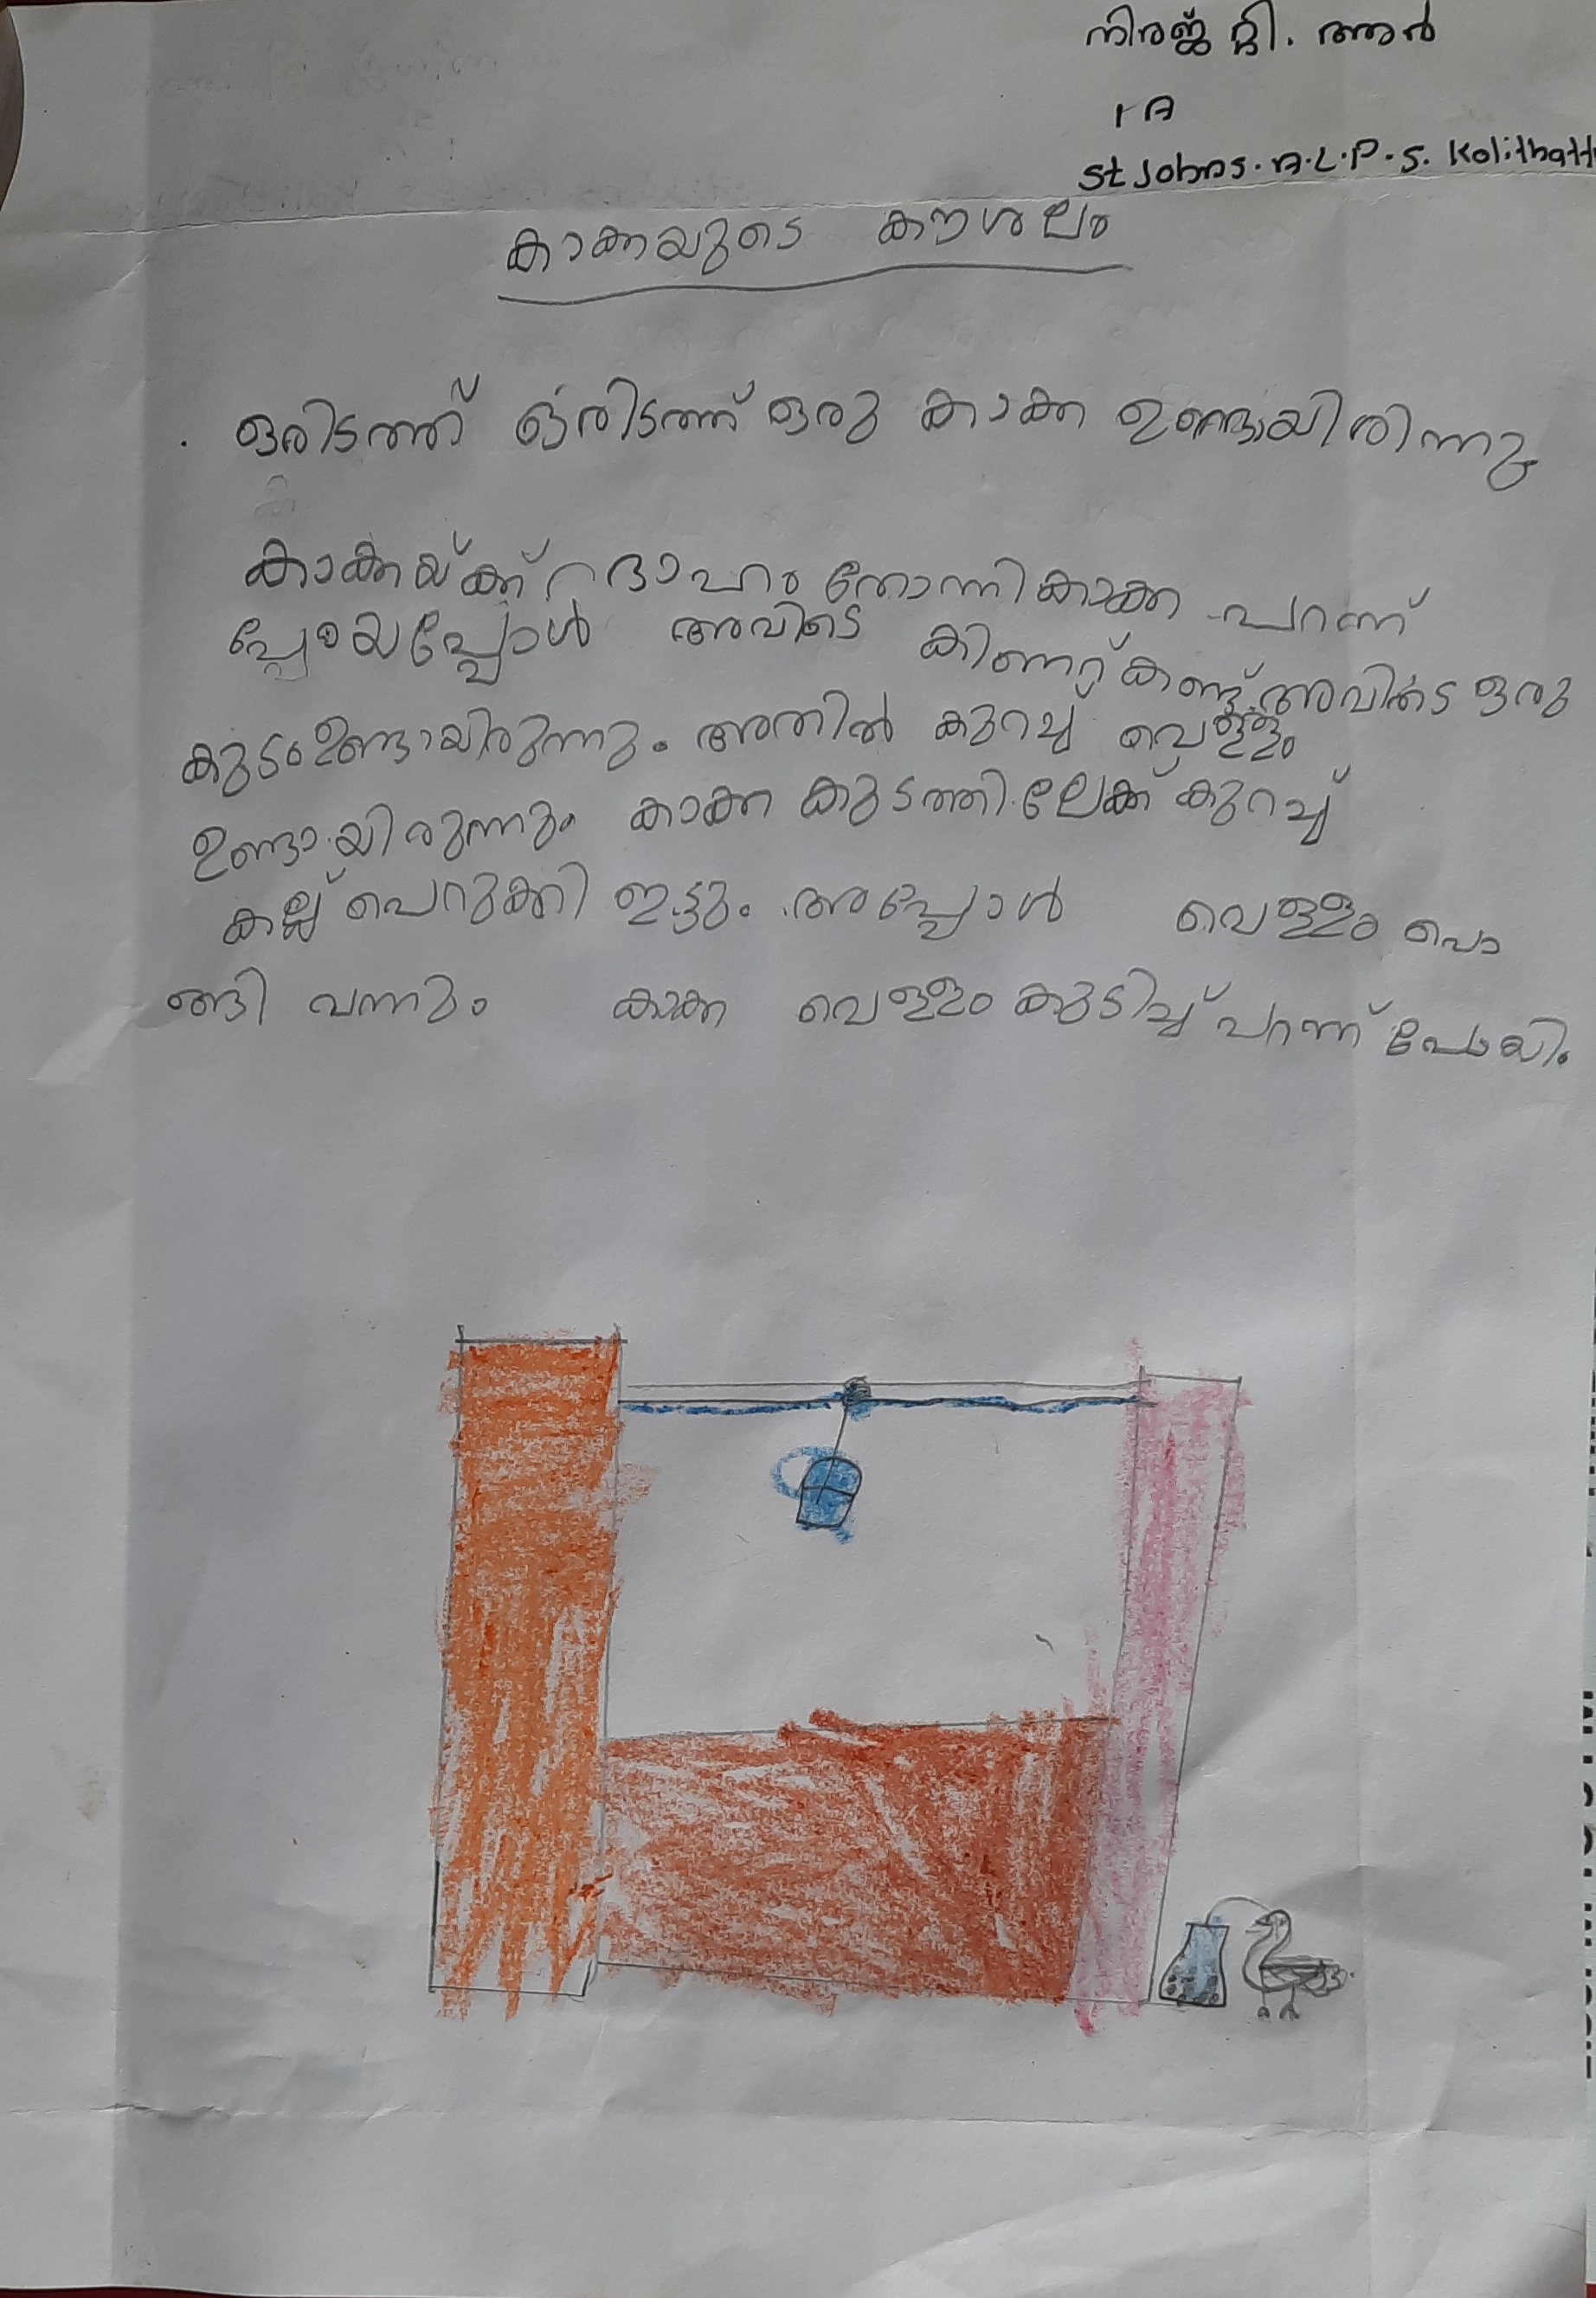 നിരജ്ജ് റ്റി. അർ
1 A
St Johns. A.L.P.S. Kolithatt
കാക്കയുടെ കൗശലം
ഒരിടത്ത് ഒരിടത്ത് ഒരു കാക്ക ഉണ്ടായിരിന്നു
കാക്കയ്ക്ക് ദാഹം തോന്നി കാക്ക പറന്ന്
പ്പോയപ്പോൾ അവിടെ കിണറ്റ് കണ്ട് അവിടെ ഒരു
കുടം ഉണ്ടായിരുന്നു. അതിൽ കുറച്ച് വെള്ളം
ഉണ്ടായിരുന്നും കാക്ക കുടത്തിലേക്ക് കുറച്ച്
കല്ല് പെറുക്കി ഇട്ടും. അപ്പോൾ വെള്ളം പൊ
ങ്ങി വന്നും കാക്ക വെള്ളം കുടിച്ച് പറന്ന് പോയി.